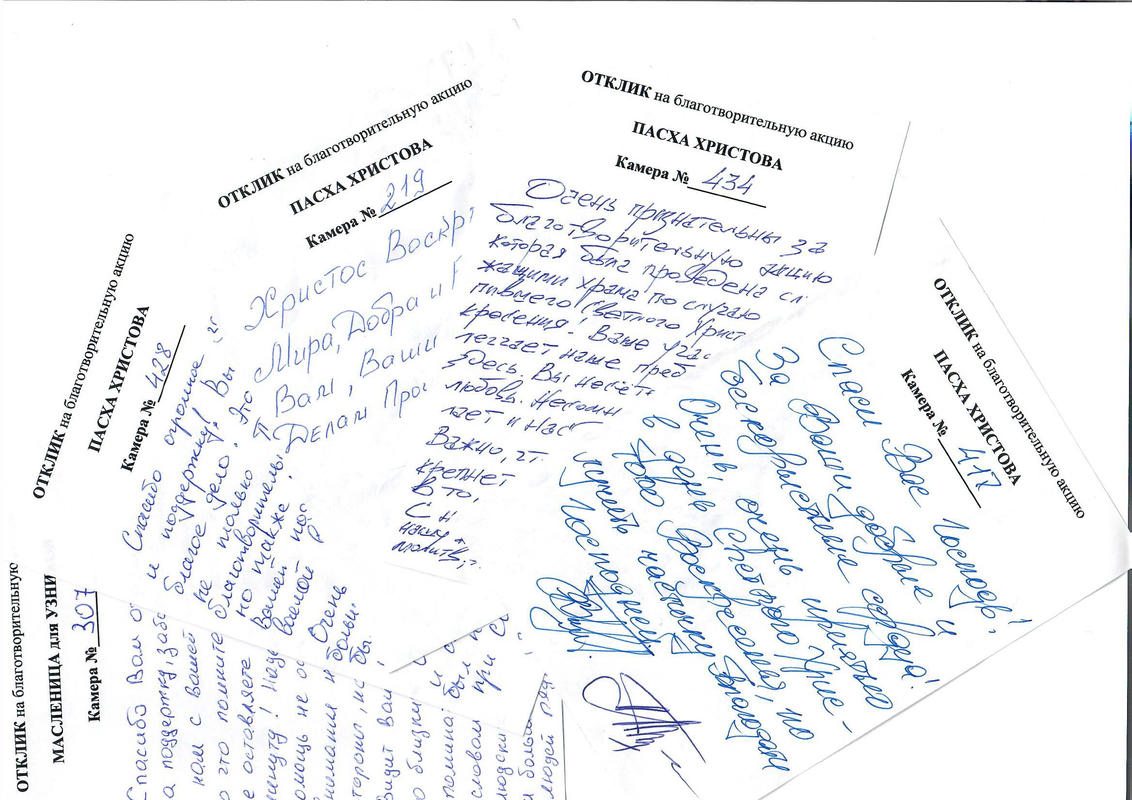 ОТКЛИК на благотворительную акцию
ПАСХА ХРИСТОВА
Камера № 434
Очень признательны за
благотворительную акцию
которая была проведена сл
жащими храма по случаю
пившего Светлого Христ
кресения! Ваше учас
легчает наше преб
здесь. Вы несёте
любовь.
гает и нас
Важно,
крепнет
В то,
С н
молитв
ОТКЛИК на благотворительную акцию
ПАСХА ХРИСТОВА
Камера № 219
Христос Воскр
Мира, Добра и
Вам, Ваши
ОТКЛИК на благотворительную акцию
ПАСХА ХРИСТОВА
Камера № 428
Спасибо огромное
и поддержку! Вы
благое дело. Это
не только
благотворитель
но также
вашей пос
Очень
ОТКЛИК на благотворительную акцию
ПАСХА ХРИСТОВА
Камера № 417
Спаси Вас Господь!
За Ваши добрые и
бескорыстные сердца!
Очень, очень приятно
в день Светлого Хрис-
това Воскресения, по
лучить частичку Благодати
Господней.
ОТКЛИК на благотворительную
МАСЛЕНИЦА для УЗНИ
Камера № 307
Спасибо Вам ог
а поддержку, забо
нам с вашей
о что помните
е оставляете
минуту!
омощь не ос
нимания и
видит ваш
о близки
словом
людей